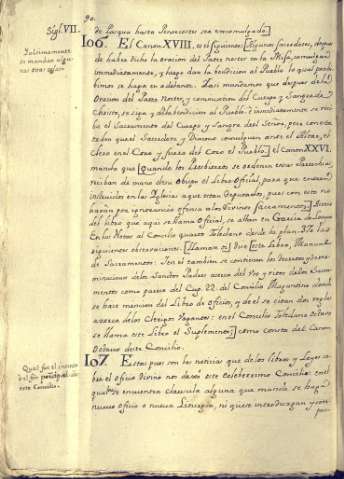 90.
Sigl. VII.
de Pasqua hasta Pentecostes sea excomulgado.]
106. El Canon XVIII. es el siguiente: [Algunos Sacerdotes, despues
Ultimamente
se mandan algu-
nas otras cosas.
de haber dicho la oracion del Pater noster en la Misa, comulgan
immediatamente, y luego dan la bendicion al Pueblo lo qual prohi-
bimos se haga en adelante: Y assi mandamos que despues de la
Oracion del Pater noster, y conmixtion del Cuerpo y Sangre de
Christo, se siga la bendicion al Pueblo: è immediatamente se reciba
el Sacramento del Cuerpo y Sangre del Señor, pero con esta
que el Sacerdote y Diacono comulguen ante el Altar, el
clero en el Coro, y fuera del Coro el Pueblo.] el Canon XXVI.
manda que [Quando los Presbiteros se ordenan para Parroquias,
reciban de mano de su Obispo el Libro Oficial, para que entren
instruidos en las Iglesias a que estan deputados, pues con esto no
haran por ignorancia ofensa a los Divinos Sacramentos.] Acerca
del libro que aqui se llama Oficial, se hallan en Garcia de Loaysa
en las Notas al Concilio quarto Toledano desde la plan. 372 las
siguientes observaciones. [Llaman (dice) este Libro, Manual
de Sacramentos: en el tambien se contienen los
de los Santos Padres acerca del uso y rito de los Sacra-
mentos como parece del Cap. 22. del Concilio Moguntino donde
se hace mencion del Libro de Oficios, y de el se citan dos reglas
acerca de los Clerigos Vagantes: en el Concilio Toledano octavo
se llama este Libro el Suplemento;] como consta del Canon
Octavo de este Concilio.
107. Estas pues son las noticias que de los libros y Leyes so-
Qual fue el intento
del fin principal de
este Concilio.
bre el oficio divino nos da este Celeberrimo Concilio: en el
qual no se encuentra clausula alguna que mande se haga
nuevo oficio o nueva Liturgia, ni que se introduzgan y com-
pon-